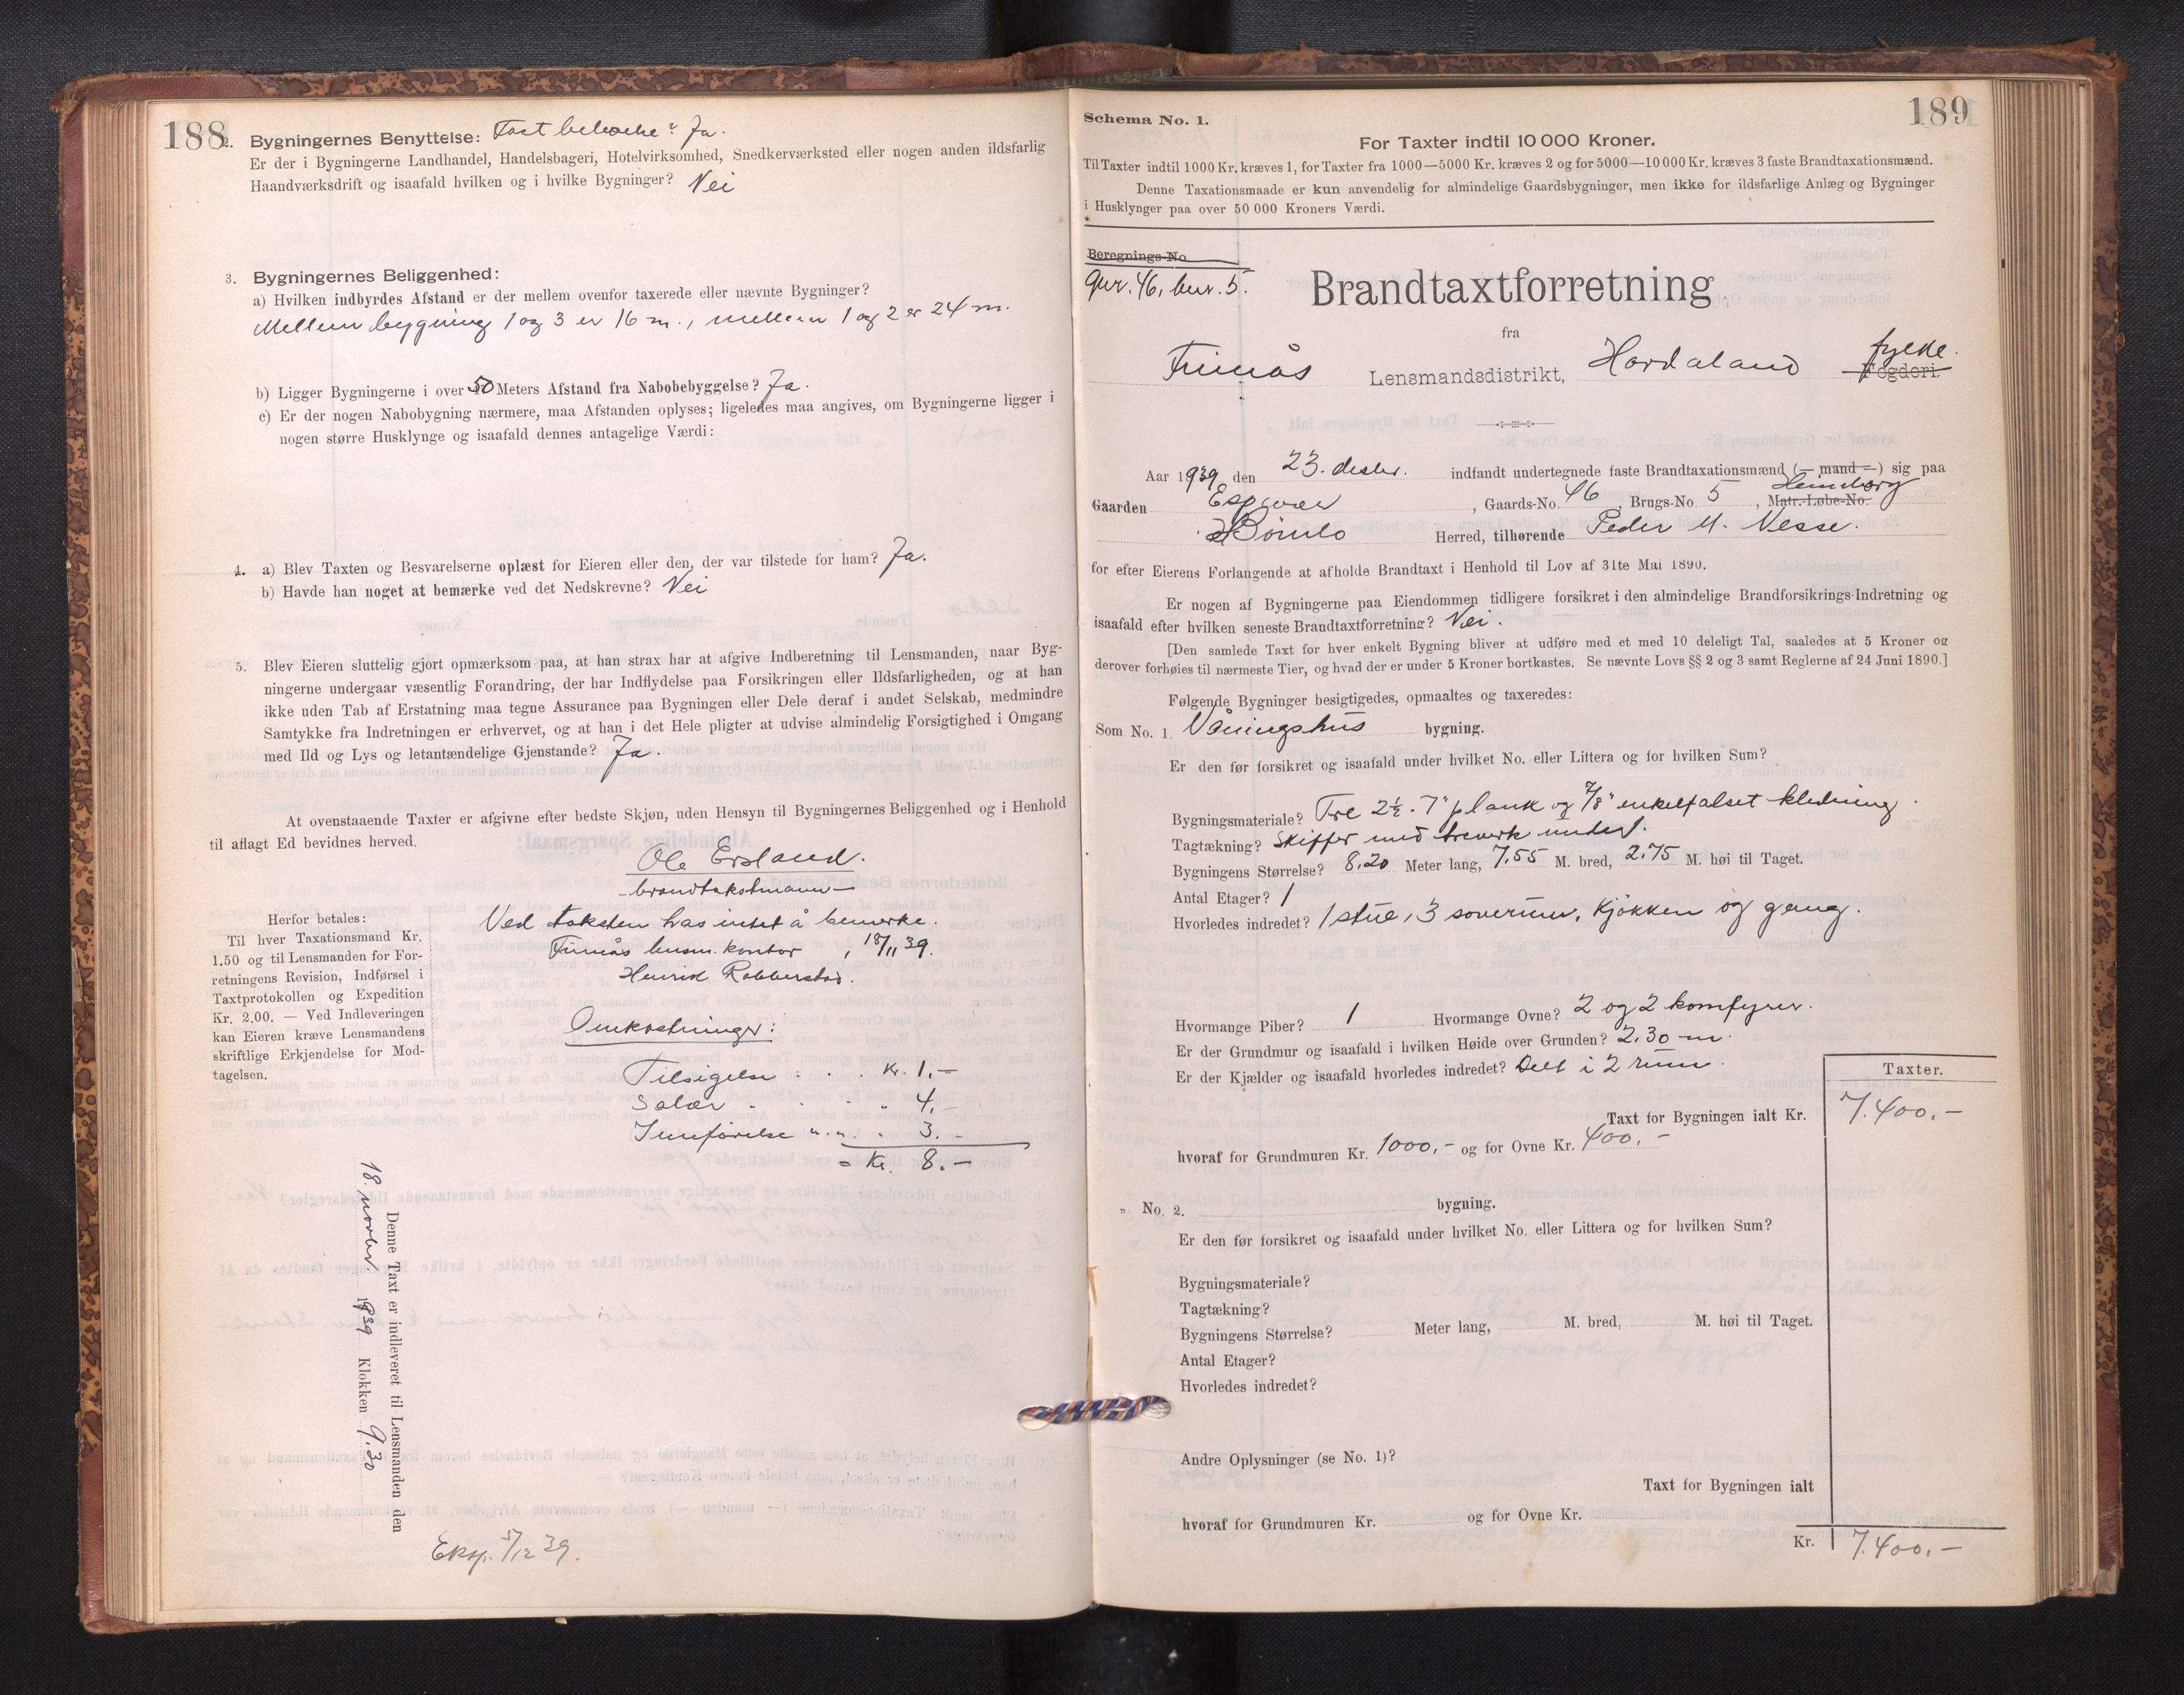 188
2. Bygningernes Benyttelse: Fast beboelse? Ja.
Er der i Bygningerne Landhandel, Handelsbageri, Hotelvirksomhed, Snedkerværksted eller nogen anden ildsfarlig
Haandværksdrift og isaafald hvilken og i hvilke Bygninger? Nei
3. Bygningernes Beliggenhed:
a) Hvilken indbyrdes Afstand er der mellem ovenfor taxerede eller nævnte Bygninger?
Mellem bygning 1 og 3 er 16 m., mellem 1 og 2 er 24 m.
b) Ligger Bygningerne i over 50 Meters Afstand fra Nabobebyggelse? Ja.
c) Er der nogen Nabobygning nærmere, maa Afstanden oplyses; ligeledes maa angives, om Bygningerne ligger i
nogen større Husklynge og isaafald dennes antagelige Værdi:
4. a) Blev Taxten og Besvarelserne oplæst for Eieren eller den, der var tilstede for ham? Ja.
b) Havde han noget at bemærke ved det Nedskrevne? Nei
5. Blev Eieren sluttelig gjort opmærksom paa, at han strax har at afgive Indberetning til Lensmanden, naar Byg-
ningerne undergaar væsentlig Forandring, der har Indflydelse paa Forsikringen eller Ildsfarligheden, og at han
ikke uden Tab af Erstatning maa tegne Assurance paa Bygningen eller Dele deraf i andet Selskab, medmindre
Samtykke fra Indretningen er erhvervet, og at han i det Hele pligter at udvise almindelig Forsigtighed i Omgang
med Ild og Lys og letantændelige Gjenstande? Ja.
At ovenstaaende Taxter er afgivne efter bedste Skjøn, uden Hensyn til Bygningernes Beliggenhed og i Henhold
til aflagt Ed bevidnes herved.
Ole Ersland.
- brandtakstmann -
Ved taksten has intet å bemerke.
Finnås lensm. kontor, 18/11 39.
Henrik Robberstad.
Omkostninger:
Tilsigelse . . . Kr. 1.-
Salær . . . . " 4.-
Innførelse m.m. " 3.-
= Kr. 8.-
Herfor betales:
Til hver Taxationsmand Kr.
1.50 og til Lensmanden for For-
retningens Revision, Indførsel i
Taxtprotokollen og Expedition
Kr. 2.00. — Ved Indleveringen
kan Eieren kræve Lensmandens
skriftlige Erkjendelse for Mod-
tagelsen.
Denne Taxt er indleveret til Lensmanden den
18. novbr. 1939 Klokken 9.30
Eksp. 5/12 39.
189
Schema No. 1.
For Taxter indtil 10 000 Kroner.
Til Taxter indtil 1000 Kr. kræves 1, for Taxter fra 1000—5000 Kr. kræves 2 og for 5000—10 000 Kr. kræves 3 faste Brandtaxationsmænd.
Denne Taxationsmaade er kun anvendelig for almindelige Gaardsbygninger, men ikke for ildsfarlige Anlæg og Bygninger
i Husklynger paa over 50 000 Kroners Værdi.
Beregnings-No
gnr. 46, bnr. 5.
Brandtaxtforretning
fra
Finnås Lensmandsdistrikt, Hordaland Fogderi. fylke.
Aar 1939 den 23. desbr. indfandt undertegnede faste Brandtaxationsmænd (— mand —) sig paa
Gaarden Espevær, Gaards-No. 46, Brugs-No. 5, Matr.-Løbe-No. Heimborg
Bømlo Herred, tilhørende Peder M. Nesse.
for efter Eierens Forlangende at afholde Brandtaxt i Henhold til Lov af 31te Mai 1890.
Er nogen af Bygningerne paa Eiendommen tidligere forsikret i den almindelige Brandforsikrings-Indretning og
isaafald efter hvilken seneste Brandtaxtforretning? Nei.
[Den samlede Taxt for hver enkelt Bygning bliver at udføre med et med 10 deleligt Tal, saaledes at 5 Kroner og
derover forhøies til nærmeste Tier, og hvad der er under 5 Kroner bortkastes. Se nævnte Lovs §§ 2 og 3 samt Reglerne af 24 Juni 1890.]
Følgende Bygninger besigtigedes, opmaaltes og taxeredes:
Som No. 1. Våningshus bygning.
Er den før forsikret og isaafald under hvilket No. eller Littera og for hvilken Sum?
Bygningsmateriale? Tre 2½. 7" plank og 7/8" enkelfalset kledning
Tagtækning? Skiffer med treverk under.
Bygningens Størrelse? 8,20 Meter lang, 7,55 M. bred, 2,75 M. høi til Taget.
Antal Etager? 1
Hvorledes indredet? 1 stue, 3 soverum, kjøkken og gang.
Hvormange Piber? 1 Hvormange Ovne? 2 og 2 komfyrer.
Er der Grundmur og isaafald i hvilken Høide over Grunden? 2,30 m.
Er der Kjælder og isaafald hvorledes indredet? Delt i 2 rum.
Taxter.
Taxt for Bygningen ialt Kr. 7.400.-
hvoraf for Grundmuren Kr. 1000,- og for Ovne Kr. 400,-
" No. 2. bygning.
Er den før forsikret og isaafald under hvilket No. eller Littera og for hvilken Sum?
Bygningsmateriale?
Tagtækning?
Bygningens Størrelse? Meter lang, M. bred, M. høi til Taget.
Antal Etager?
Hvorledes indredet?
Andre Oplysninger (se No. 1)?
Taxt for Bygningen ialt
hvoraf for Grundmuren Kr. og for Ovne Kr.
Kr. 7.400.-